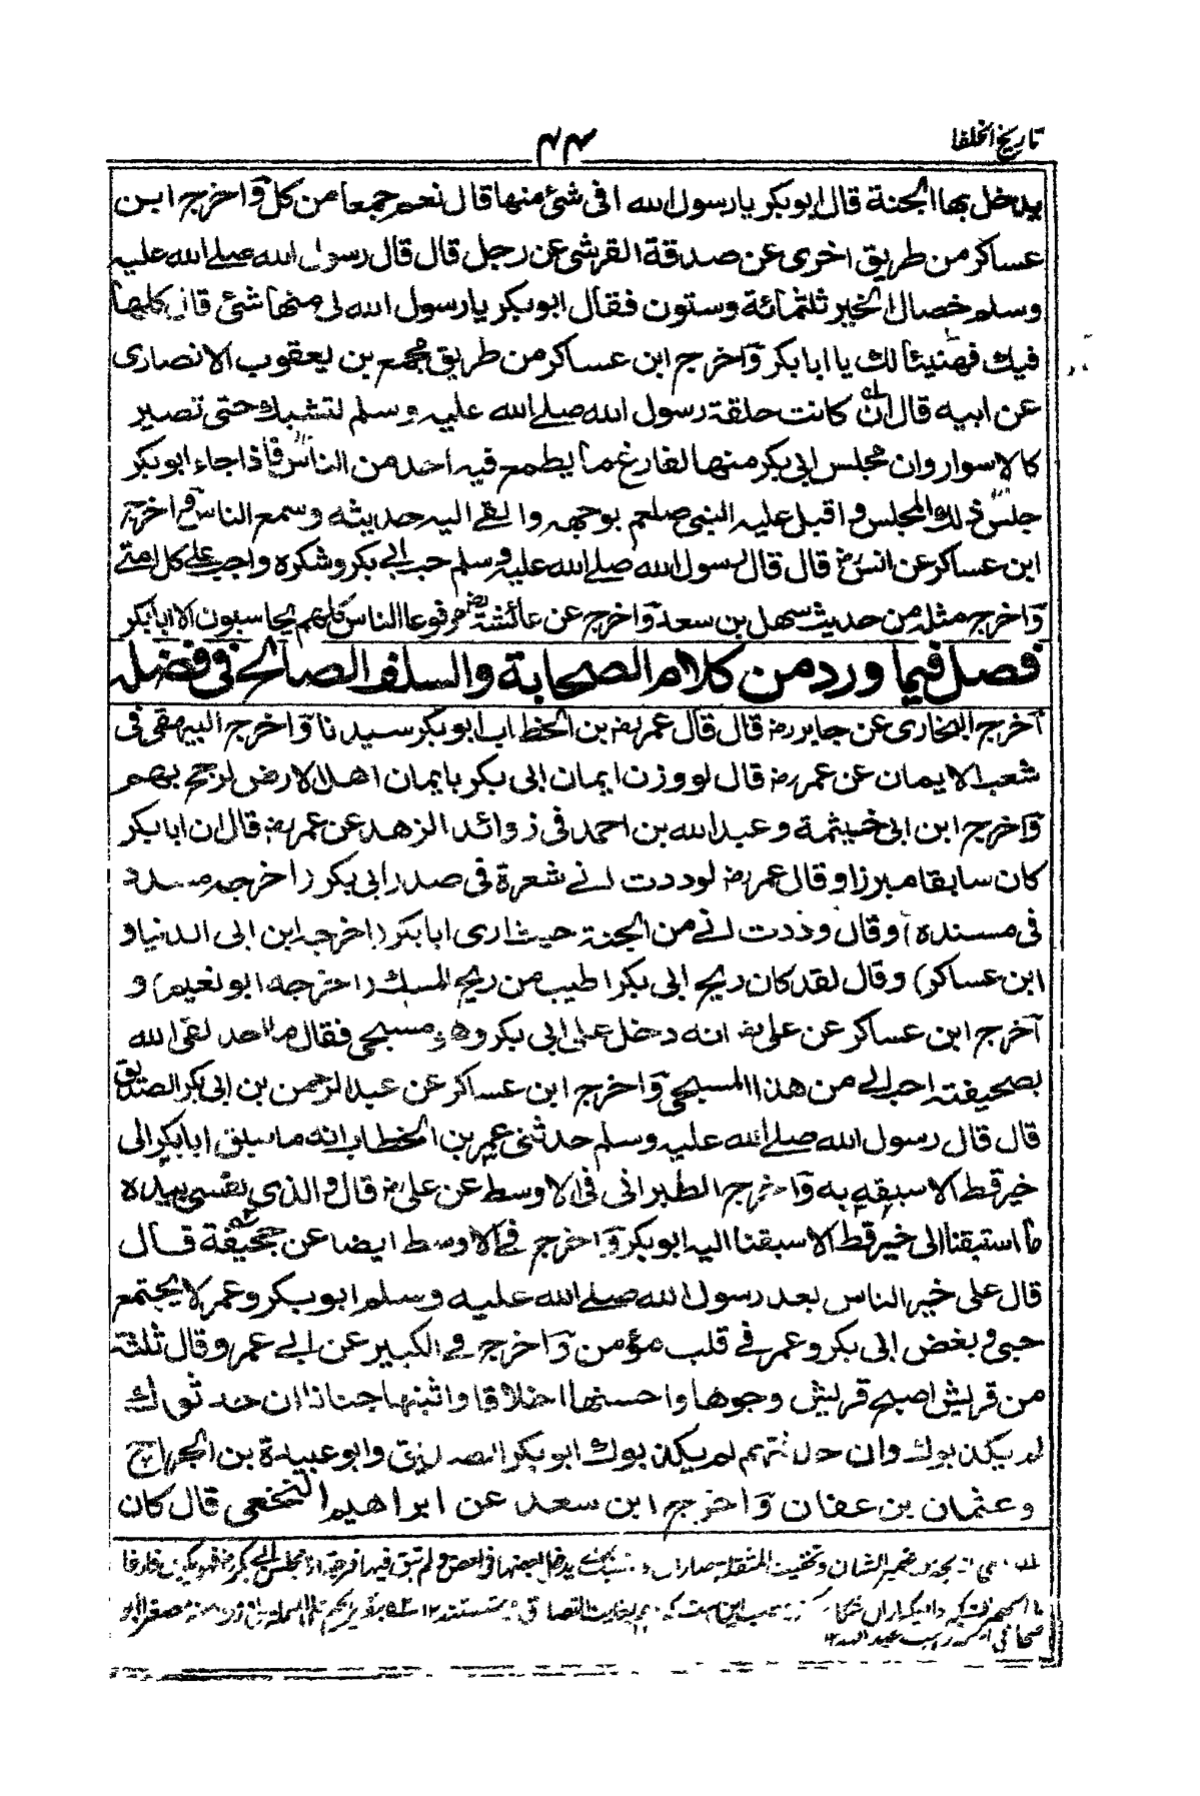 تاريخ الخلفا
۴۴
يدخل بها الجنة قال ابوبكر يا رسول الله افى شئ منها قال نعم جمعا من كل وآخرج ابن
عساكر من طريق اخرى عن صدقة القرشى عن رجل قال قال رسول الله صلے الله عليه
وسلم خصال الخير ثلثمائة وستون فقال ابوبكر يا رسول الله لى منها شئ قال كلها
فيك فهنيئا لك يا ابا بكر وآخرج ابن عساكر من طريق مجمع بن يعقوب الانصارى
عن ابيه قال ان كانت حلقة رسول الله صلے الله عليه وسلم لتشبك حتى تصير
كالاسوار وان مجلس ابى بكر منها لفارغ ما يطمع فيه احد من الناس فاذا جاء ابوبكر
جلس ذلك المجلس واقبل عليه النبى صلعم بوجهه والقے اليه حديثه وسمع الناس وآخرج
ابن عساكر عن انس رض قال قال رسول الله صلے الله عليه وسلم حب ابى بكر وشكره واجب على كل امتے
وآخرج مثله من حديث سهل بن سعد وآخرج عن عائشة رض مرفوعا الناس كلهم يحاسبون الا ابا بكر
فصل فيما ورد من كلام الصحابة والسلف الصالح فى فضله
آخرج البخارى عن جابر رض قال قال عمر رض بن الخطاب ابوبكر سيدنا وآخرج البيهقى فى
شعب الايمان عن عمر رض قال لو وزن ايمان ابى بكر بايمان اهل الارض لرجح بهم
وآخرج ابن ابى خيثمة وعبد الله بن احمد فى زوائد الزهد عن عمر رض قال ان ابا بكر
كان سابقا مبرزا وقال عمر رض لوددت انے شعرة فى صدر ابى بكر (اخرجه مسدد
فى مسنده) وقال وددت انے من الجنة حيث ارى ابا بكر (اخرجه ابن ابى الدنيا و
ابن عساكر) وقال لقد كان ريح ابى بكر اطيب من ريح المسك (اخرجه ابو نعيم) و
آخرج ابن عساكر عن على رض انه دخل على ابى بكر وهو مسجى فقال ما احد لقى الله
بصحيفته احب الے من هذا المسجى وآخرج ابن عساكر عن عبد الرحمن بن ابى بكر الصديق
قال قال رسول الله صلے الله عليه وسلم حدثنى عمر بن الخطاب انه ما سابق ابا بكر الى
خير قط الا سبقه به وآخرج الطبرانى فى الاوسط عن على رض قال والذى نفسى بيده
ما استبقنا الى خير قط الا سبقنا اليه ابوبكر وآخرج فے الاوسط ايضا عن جحيفة قال
قال على خير الناس بعد رسول الله صلے الله عليه وسلم ابوبكر وعمر لا يجتمع
حبى وبغض ابى بكر وعمر فے قلب مؤمن وآخرج فے الكبير عن ابے عمر وقال ثلثة
من قريش اصبح قريش وجوها واحسنها اخلاقا واثبتها جنانا ان حدثوك
لم يكذبوك وان حدثتهم لم يكذبوك ابوبكر الصديق وابو عبيدة بن الجراح
وعثمان بن عفان وآخرج ابن سعد عن ابراهيم النخعى قال كان